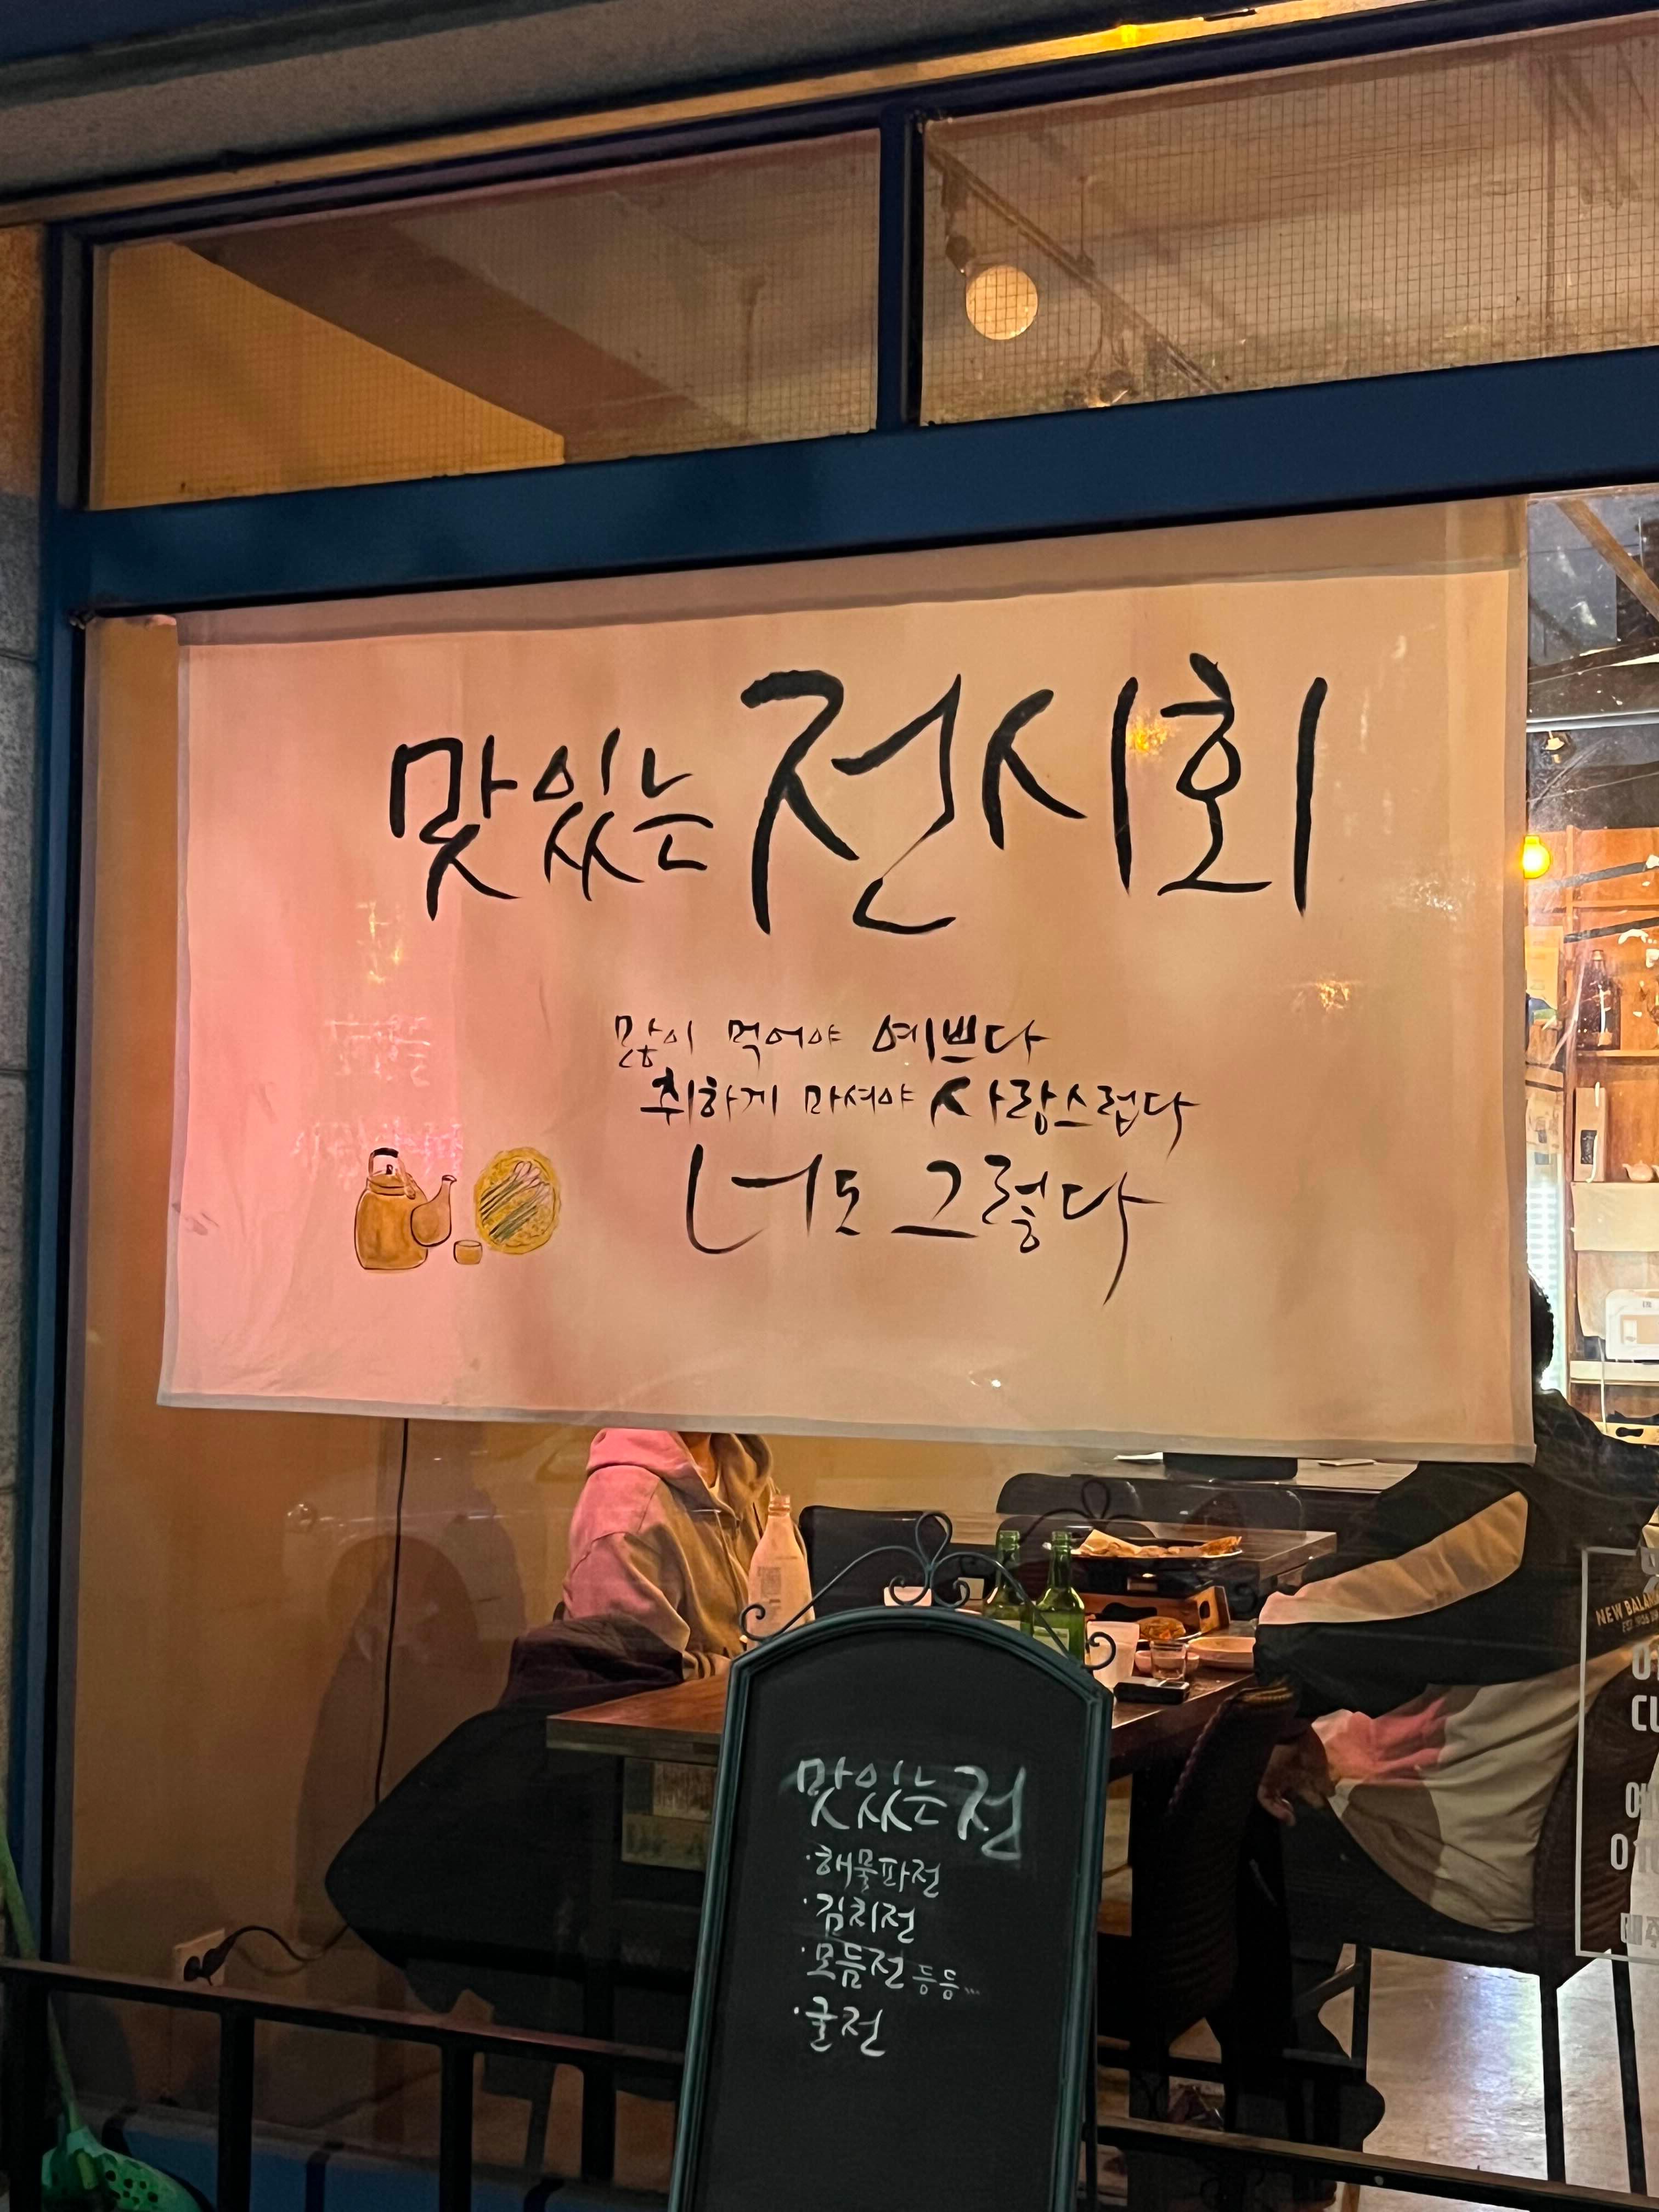 맛있는 전시회
많이 먹어야 예쁘다
취하게 마셔야 사랑스럽다
너도 그렇다
맛있는 전
·해물파전
·김치전
·모듬전 등등...
·굴전
NEW BALAN